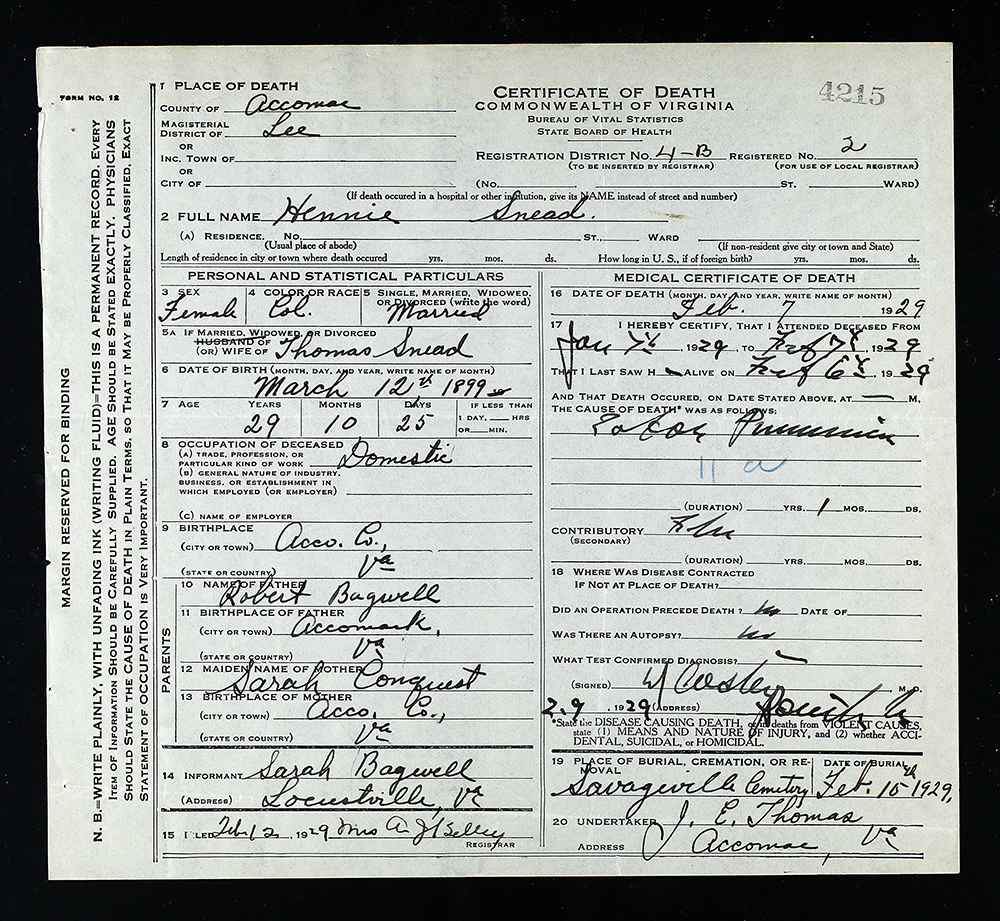 FORM NO. 12
MARGIN RESERVED FOR BINDING
N. B.—WRITE PLAINLY, WITH UNFADING INK (WRITING FLUID)—THIS IS A PERMANENT RECORD. EVERY
ITEM OF INFORMATION SHOULD BE CAREFULLY SUPPLIED. AGE SHOULD BE STATED EXACTLY. PHYSICIANS
SHOULD STATE THE CAUSE OF DEATH IN PLAIN TERMS, SO THAT IT MAY BE PROPERLY CLASSIFIED. EXACT
STATEMENT OF OCCUPATION IS VERY IMPORTANT.
1 PLACE OF DEATH
COUNTY OF Accomac
MAGISTERIAL
DISTRICT OF Lee
OR
INC. TOWN OF
OR
CITY OF
CERTIFICATE OF DEATH
COMMONWEALTH OF VIRGINIA
BUREAU OF VITAL STATISTICS
STATE BOARD OF HEALTH
4215
REGISTRATION DISTRICT NO. 4-B REGISTERED NO. 2
(TO BE INSERTED BY REGISTRAR) (FOR USE OF LOCAL REGISTRAR)
(No. ST. WARD)
(If death occured in a hospital or other institution, give its NAME instead of street and number)
2 FULL NAME Hennie Snead.
(A) RESIDENCE. No. ST., WARD
(Usual place of abode) (If non-resident give city or town and State)
Length of residence in city or town where death occured yrs. mos. ds. How long in U. S., if of foreign birth? yrs. mos. ds.
PERSONAL AND STATISTICAL PARTICULARS
3 SEX 4 COLOR OR RACE 5 SINGLE, MARRIED, WIDOWED,
OR DIVORCED (write the word)
Female Col. Married
5A IF MARRIED, WIDOWED, OR DIVORCED
HUSBAND OF
(OR) WIFE OF Thomas Snead
6 DATE OF BIRTH (MONTH, DAY, AND YEAR, WRITE NAME OF MONTH)
March 12th 1899
7 AGE YEARS MONTHS DAYS IF LESS THAN
29 10 25 1 DAY, HRS
OR MIN.
8 OCCUPATION OF DECEASED
(A) TRADE, PROFESSION, OR
PARTICULAR KIND OF WORK Domestic
(B) GENERAL NATURE OF INDUSTRY,
BUSINESS, OR ESTABLISHMENT IN
WHICH EMPLOYED (OR EMPLOYER)
(C) NAME OF EMPLOYER
9 BIRTHPLACE
(CITY OR TOWN) Acco. Co.,
(STATE OR COUNTRY) Va
PARENTS
10 NAME OF FATHER
Robert Bagwell
11 BIRTHPLACE OF FATHER
(CITY OR TOWN) Accomack,
(STATE OR COUNTRY) Va
12 MAIDEN NAME OF MOTHER
Sarah Conquest
13 BIRTHPLACE OF MOTHER
(CITY OR TOWN) Acco. Co.,
(STATE OR COUNTRY) Va
14 INFORMANT Sarah Bagwell
(ADDRESS) Locustville, Va
15 FILED Feb 12, 1929 Mrs A J Kelley
REGISTRAR
MEDICAL CERTIFICATE OF DEATH
16 DATE OF DEATH (MONTH, DAY AND YEAR, WRITE NAME OF MONTH)
Feb. 7 1929
17 I HEREBY CERTIFY, THAT I ATTENDED DECEASED FROM
Jan 7th, 1929, TO Feb 7th, 1929
THAT I LAST SAW H ALIVE ON Feb 6th, 1929
AND THAT DEATH OCCURED, ON DATE STATED ABOVE, AT — M.
THE CAUSE OF DEATH* WAS AS FOLLOWS:
11 a
(DURATION) YRS. 1 MOS. DS.
CONTRIBUTORY Flu
(SECONDARY)
(DURATION) YRS. MOS. DS.
18 WHERE WAS DISEASE CONTRACTED
IF NOT AT PLACE OF DEATH?
DID AN OPERATION PRECEDE DEATH? no DATE OF
WAS THERE AN AUTOPSY? no
WHAT TEST CONFIRMED DIAGNOSIS?
(SIGNED) M. D.
2.9, 1929 (ADDRESS)
*State the DISEASE CAUSING DEATH, or in deaths from VIOLENT CAUSES,
state (1) MEANS AND NATURE OF INJURY, and (2) whether ACCI-
DENTAL, SUICIDAL, or HOMICIDAL.
19 PLACE OF BURIAL, CREMATION, OR RE- DATE OF BURIAL
MOVAL
Savageville Cemetery Feb. 10th 1929,
20 UNDERTAKER J. E. Thomas
ADDRESS Accomac, Va